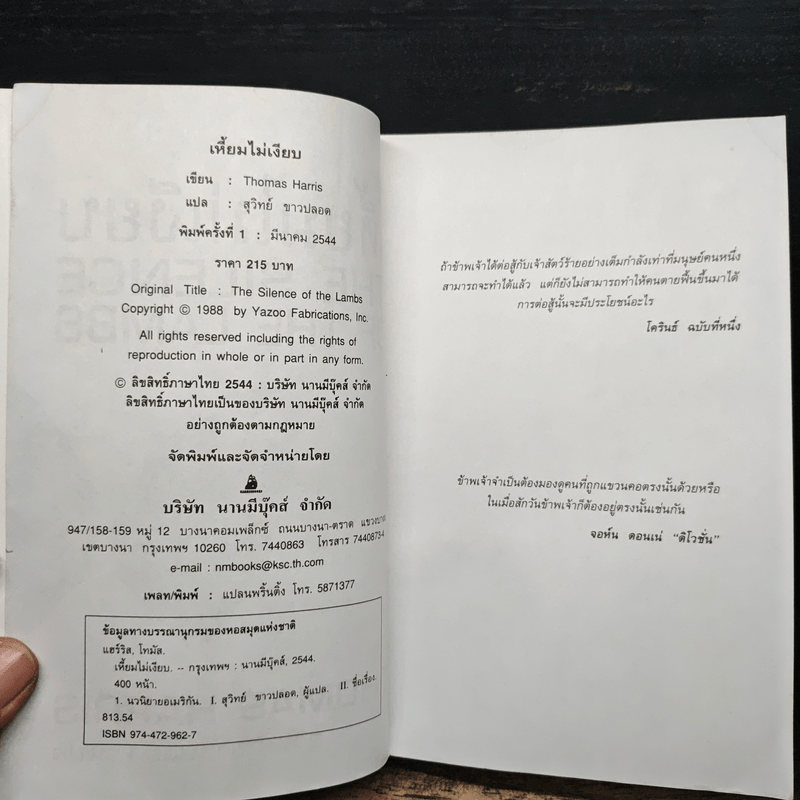 เหี้ยมไม่เงียบ
เขียน : Thomas Harris
แปล : สุวิทย์ ขาวปลอด
พิมพ์ครั้งที่ 1 : มีนาคม 2544
ราคา 215 บาท
Original Title : The Silence of the Lambs
Copyright © 1988 by Yazoo Fabrications, Inc.
All rights reserved including the rights of
reproduction in whole or in part in any form.
© ลิขสิทธิ์ภาษาไทย 2544 : บริษัท นานมีบุ๊คส์ จำกัด
ลิขสิทธิ์ภาษาไทยเป็นของบริษัท นานมีบุ๊คส์ จำกัด
อย่างถูกต้องตามกฎหมาย
จัดพิมพ์และจัดจำหน่ายโดย
บริษัท นานมีบุ๊คส์ จำกัด
947/158-159 หมู่ 12 บางนาคอมเพล็กซ์ ถนนบางนา-ตราด แขวงบางนา
เขตบางนา กรุงเทพฯ 10260 โทร. 7440863 โทรสาร 7440873-4
e-mail : nmbooks@ksc.th.com
เพลท/พิมพ์ : แปลนพริ้นติ้ง โทร. 5871377
ข้อมูลทางบรรณานุกรมของหอสมุดแห่งชาติ
แฮร์ริส, โทมัส.
เหี้ยมไม่เงียบ. -- กรุงเทพฯ : นานมีบุ๊คส์, 2544.
400 หน้า.
1. นวนิยายอเมริกัน. I. สุวิทย์ ขาวปลอด, ผู้แปล. II. ชื่อเรื่อง.
813.54
ISBN 974-472-962-7
ถ้าข้าพเจ้าได้ต่อสู้กับเจ้าสัตว์ร้ายอย่างเต็มกำลังเท่าที่มนุษย์คนหนึ่ง
สามารถจะทำได้แล้ว แต่ก็ยังไม่สามารถทำให้คนตายฟื้นขึ้นมาได้
การต่อสู้นั้นจะมีประโยชน์อะไร
โครินธ์ ฉบับที่หนึ่ง
ข้าพเจ้าจำเป็นต้องมองดูคนที่ถูกแขวนคอตรงนั้นด้วยหรือ
ในเมื่อสักวันข้าพเจ้าก็ต้องอยู่ตรงนั้นเช่นกัน
จอห์น ดอนเน่ "ดิโวชั่น"